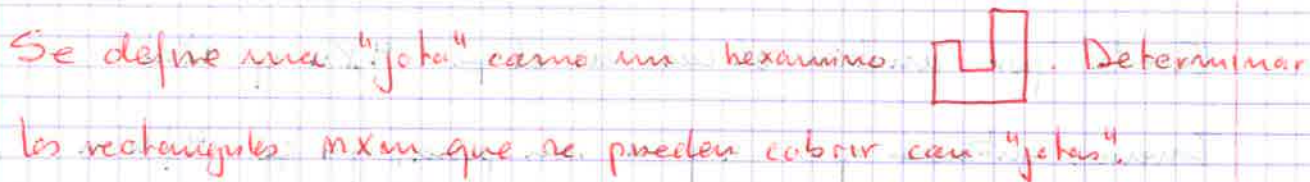 Se define una "jota" como un hexamino. . Determinar
los rectangulos mxn que se pueden cubrir con "jotas".